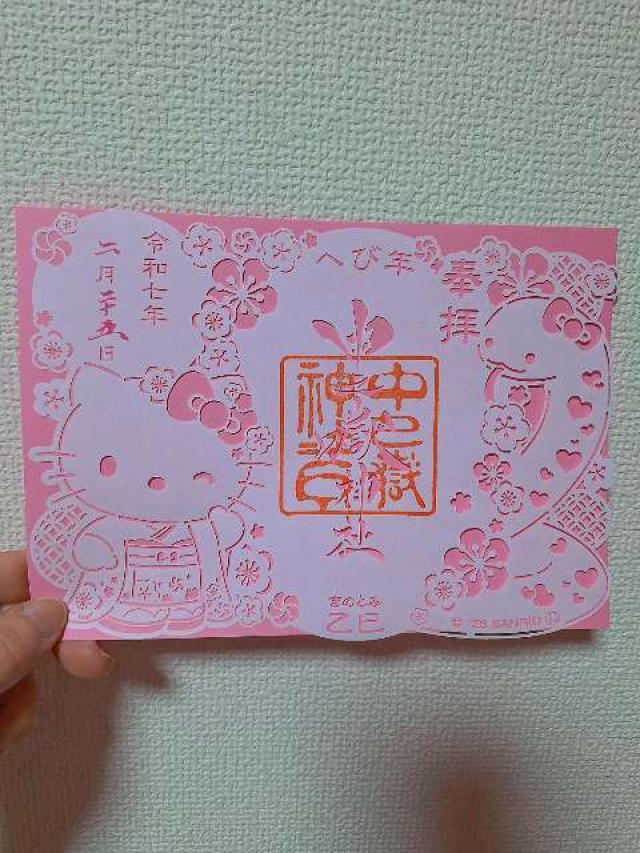 奉拝
へび年
中之嶽神社
中之嶽
神社印
令和七年
二月二十五日
きのとみ
乙巳
© '25 SANRIO Ⓛ